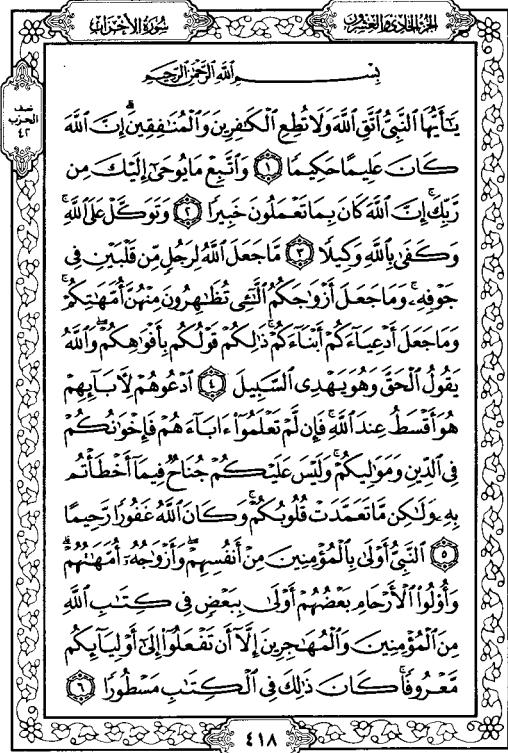 الجزء الحادي والعشرون
سورة الأحزاب
نصف
الحزب
٤٢
بِسْمِ ٱللَّهِ ٱلرَّحْمَٰنِ ٱلرَّحِيمِ
يَٰٓأَيُّهَا ٱلنَّبِيُّ ٱتَّقِ ٱللَّهَ وَلَا تُطِعِ ٱلْكَٰفِرِينَ وَٱلْمُنَٰفِقِينَۗ إِنَّ ٱللَّهَ
كَانَ عَلِيمًا حَكِيمًا ١ وَٱتَّبِعْ مَا يُوحَىٰٓ إِلَيْكَ مِن
رَّبِّكَۚ إِنَّ ٱللَّهَ كَانَ بِمَا تَعْمَلُونَ خَبِيرًا ٢ وَتَوَكَّلْ عَلَى ٱللَّهِۚ
وَكَفَىٰ بِٱللَّهِ وَكِيلًا ٣ مَّا جَعَلَ ٱللَّهُ لِرَجُلٍ مِّن قَلْبَيْنِ فِى
جَوْفِهِۦۚ وَمَا جَعَلَ أَزْوَٰجَكُمُ ٱلَّٰٓـِٔى تُظَٰهِرُونَ مِنْهُنَّ أُمَّهَٰتِكُمْۚ
وَمَا جَعَلَ أَدْعِيَآءَكُمْ أَبْنَآءَكُمْۚ ذَٰلِكُمْ قَوْلُكُم بِأَفْوَٰهِكُمْۖ وَٱللَّهُ
يَقُولُ ٱلْحَقَّ وَهُوَ يَهْدِى ٱلسَّبِيلَ ٤ ٱدْعُوهُمْ لِـَٔابَآئِهِمْ
هُوَ أَقْسَطُ عِندَ ٱللَّهِۚ فَإِن لَّمْ تَعْلَمُوٓا۟ ءَابَآءَهُمْ فَإِخْوَٰنُكُمْ
فِى ٱلدِّينِ وَمَوَٰلِيكُمْۚ وَلَيْسَ عَلَيْكُمْ جُنَاحٌ فِيمَآ أَخْطَأْتُم
بِهِۦ وَلَٰكِن مَّا تَعَمَّدَتْ قُلُوبُكُمْۚ وَكَانَ ٱللَّهُ غَفُورًا رَّحِيمًا
٥ ٱلنَّبِىُّ أَوْلَىٰ بِٱلْمُؤْمِنِينَ مِنْ أَنفُسِهِمْۖ وَأَزْوَٰجُهُۥٓ أُمَّهَٰتُهُمْۗ
وَأُو۟لُوا۟ ٱلْأَرْحَامِ بَعْضُهُمْ أَوْلَىٰ بِبَعْضٍ فِى كِتَٰبِ ٱللَّهِ
مِنَ ٱلْمُؤْمِنِينَ وَٱلْمُهَٰجِرِينَ إِلَّآ أَن تَفْعَلُوٓا۟ إِلَىٰٓ أَوْلِيَآئِكُم
مَّعْرُوفًاۚ كَانَ ذَٰلِكَ فِى ٱلْكِتَٰبِ مَسْطُورًا ٦
٤١٨